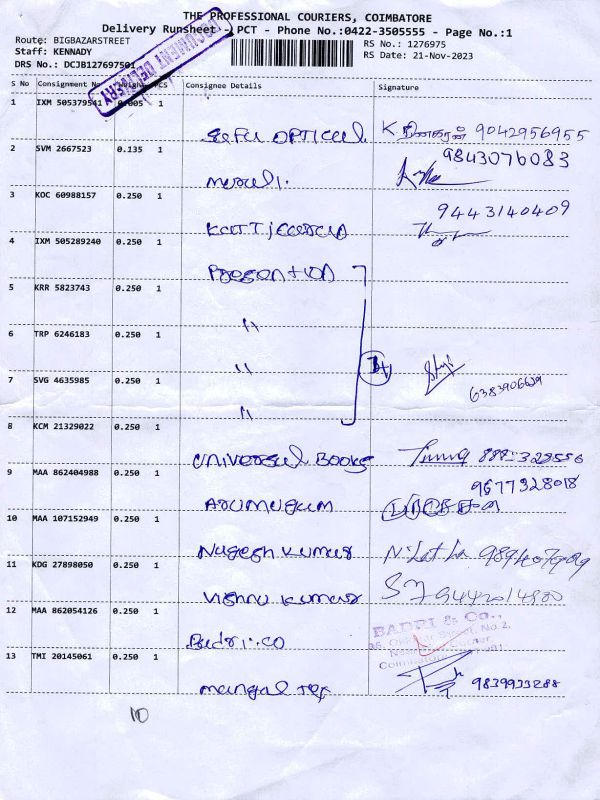 THE PROFESSIONAL COURIERS, COIMBATORE
Delivery Runsheet - PCT - Phone No.:0422-3505555 - Page No.:1
Route: BIGBAZARSTREET RS No.: 1276975
Staff: KENNADY RS Date: 21-Nov-2023
DRS No.: DCJB127697501
DOCUMENT DELIVERY
S No Consignment No Weight PCS Consignee Details Signature
1 IXM 505379541 0.005 1
SEFU OPTICAL 9042956955
2 SVM 2667523 0.135 1 9843076083
murali.
3 KOC 60988157 0.250 1 9443140409
4 IXM 505289240 0.250 1
5 KRR 5823743 0.250 1
"
6 TRP 6246183 0.250 1
"
7 SVG 4635985 0.250 1
"
8 KCM 21329022 0.250 1
UNIVERSUL BOOKS
9 MAA 862404988 0.250 1 9677328018
ARUMUGUM
10 MAA 107152949 0.250 1
Nagesh Kumar
11 KDG 27898050 0.250 1
Vishnu Kumar 9442014800
12 MAA 862054126 0.250 1 BADRI & Co.,
Badri.co
13 TMI 20145061 0.250 1
mangal Tex 9839933288